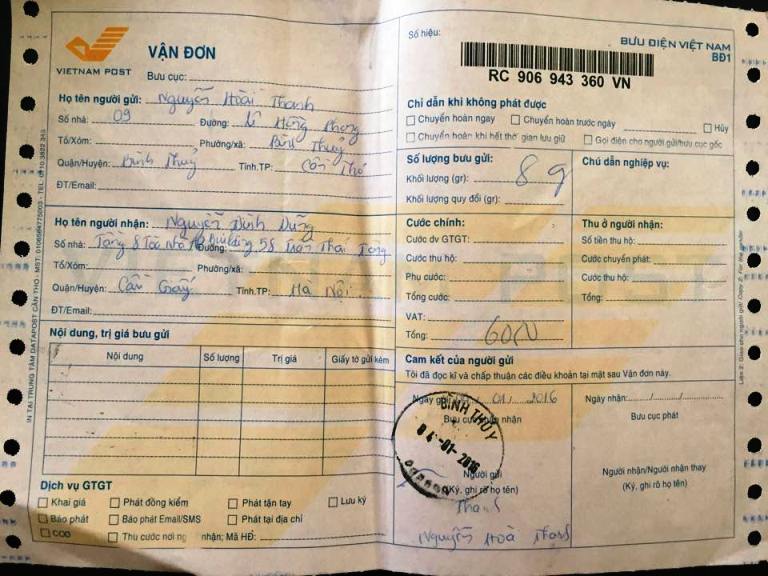 VIETNAM POST
VẬN ĐƠN
Bưu cục:
Họ tên người gửi: Nguyễn Hoài Thanh
Số nhà: 09 Đường: Lê Hồng Phong
Tổ/Xóm: Phường/xã: Bình Thuỷ
Quận/Huyện: Bình Thuỷ Tỉnh.TP: Cần Thơ
ĐT/Email:
Họ tên người nhận: Nguyễn Đình Dũng
Số nhà: Tầng 8 Toà nhà Building 58 Đường: Trần Thái Tông
Tổ/Xóm: Phường/xã:
Quận/Huyện: Cầu Giấy Tỉnh.TP: Hà Nội
ĐT/Email:
Nội dung, trị giá bưu gửi
Nội dung Số lượng Trị giá Giấy tờ gửi kèm
Dịch vụ GTGT
Khai giá Phát đồng kiểm Phát tận tay Lưu ký
Báo phát Báo phát Email/SMS Phát tại địa chỉ
COD Thu cước nơi người nhận; Mã HĐ:
Số hiệu:
BƯU ĐIỆN VIỆT NAM
BĐ1
RC 906 943 360 VN
Chỉ dẫn khi không phát được
Chuyển hoàn ngay Chuyển hoàn trước ngày Hủy
Chuyển hoàn khi hết thời gian lưu giữ Gọi điện cho người gửi/bưu cục gốc
Số lượng bưu gửi: Chú dẫn nghiệp vụ:
Khối lượng (gr): 8g
Khối lượng quy đổi (gr):
Cước chính: Thu ở người nhận:
Cước dv GTGT: Số tiền thu hộ:
Cước thu hộ: Cước chuyển phát:
Phụ cước: Cước thu hộ:
Tổng cước: Tổng:
VAT:
Tổng:
Cam kết của người gửi
Tôi đã đọc kĩ và chấp thuận các điều khoản tại mặt sau Vận đơn này.
Ngày gửi 01/2016 Ngày nhận:
Bưu cục nhận Bưu cục phát
BÌNH THỦY
04-01-2016
Người gửi Người nhận/Người nhận thay
(Ký, ghi rõ họ tên) (Ký, ghi rõ họ tên)
Thanh
Nguyễn Hoài Thanh